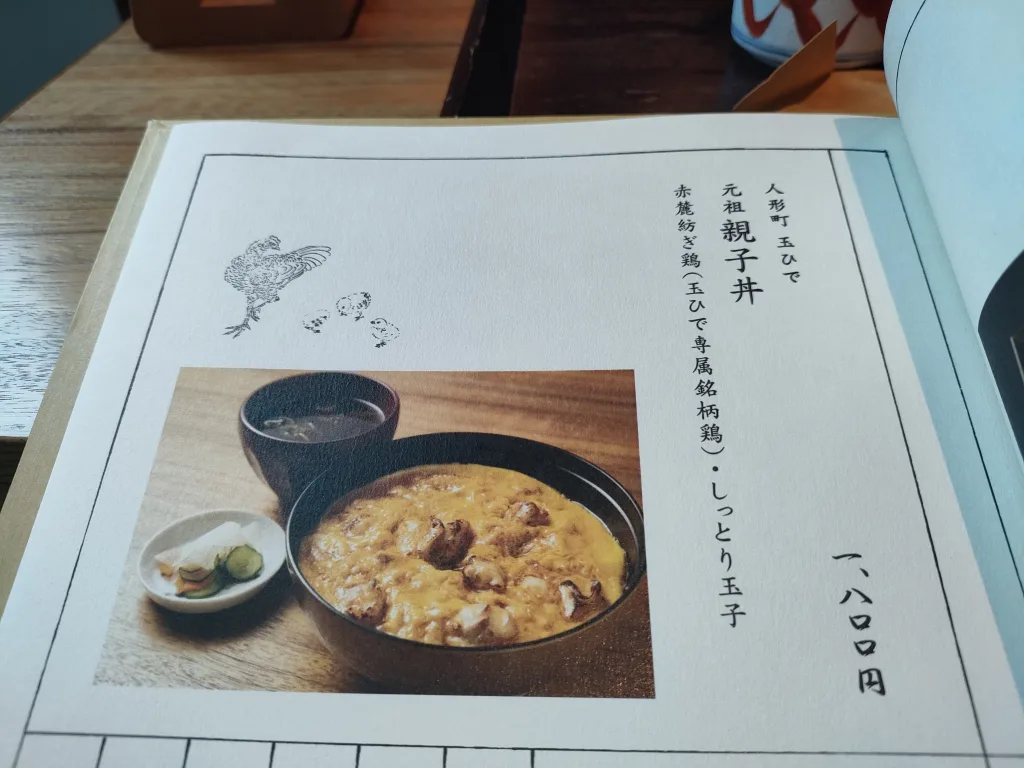 人形町 玉ひで
元祖 親子丼
赤麓紡ぎ鶏（玉ひで専属銘柄鶏）・しっとり玉子
一、八〇〇円